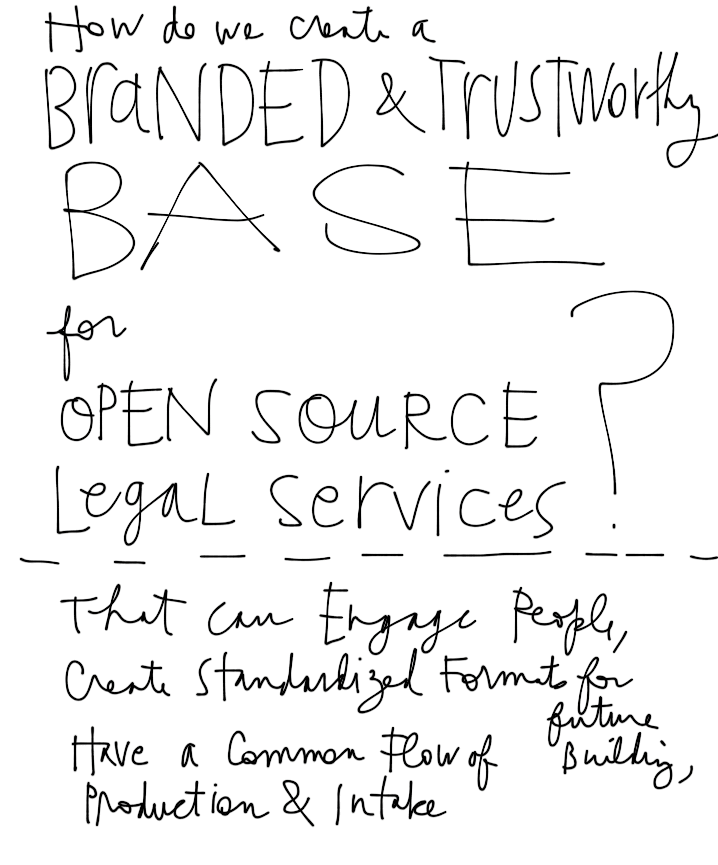 How do we create a
BranDED & TrUSTWorthy
BASE
for
OPEN SOURCE
LegaL Services?
That can Engage People,
Create Standardized Formats for
future
Have a Common Flow of Building,
Production & Intake